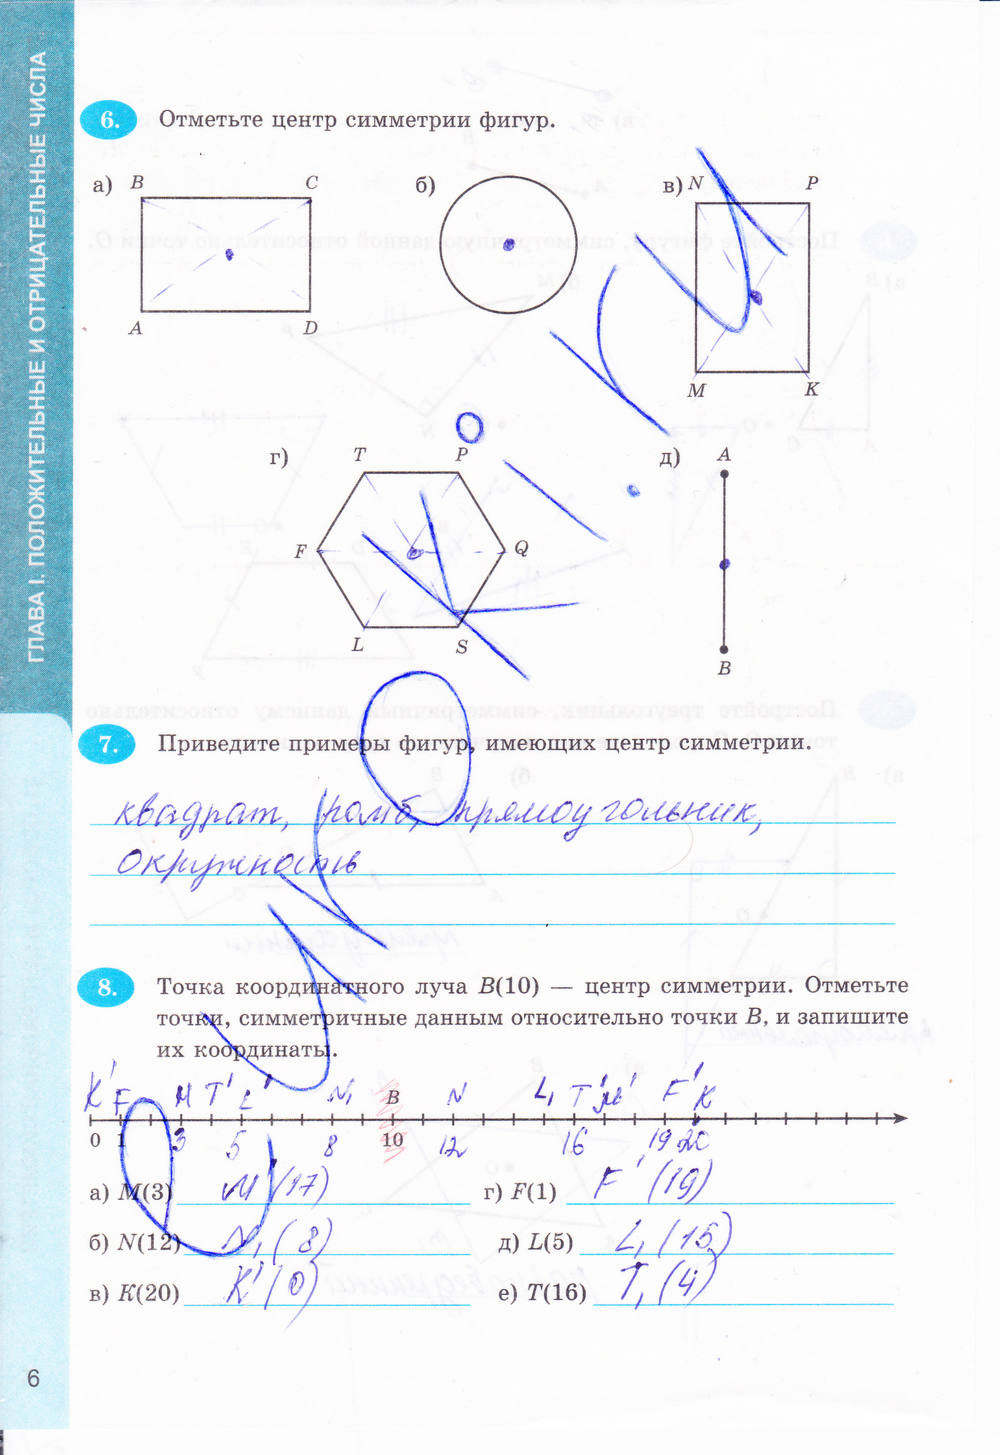 ГЛАВА I. ПОЛОЖИТЕЛЬНЫЕ И ОТРИЦАТЕЛЬНЫЕ ЧИСЛА
6. Отметьте центр симметрии фигур.
а) B C
A D
б)
в) N P
M K
г) T P
F Q
L S
д) A
B
7. Приведите примеры фигур, имеющих центр симметрии.
квадрат, ромб, прямоугольник,
окружность
8. Точка координатного луча B(10) — центр симметрии. Отметьте
точки, симметричные данным относительно точки B, и запишите
их координаты.
K' F M T' L' N₁ B N L₁ T' M' F' K
0 1 3 5 8 10 12 16 19 20
а) M(3) M' (17)
г) F(1) F' (19)
б) N(12) N₁ (8)
д) L(5) L₁ (15)
в) K(20) K' (0)
е) T(16) T₁ (4)
6